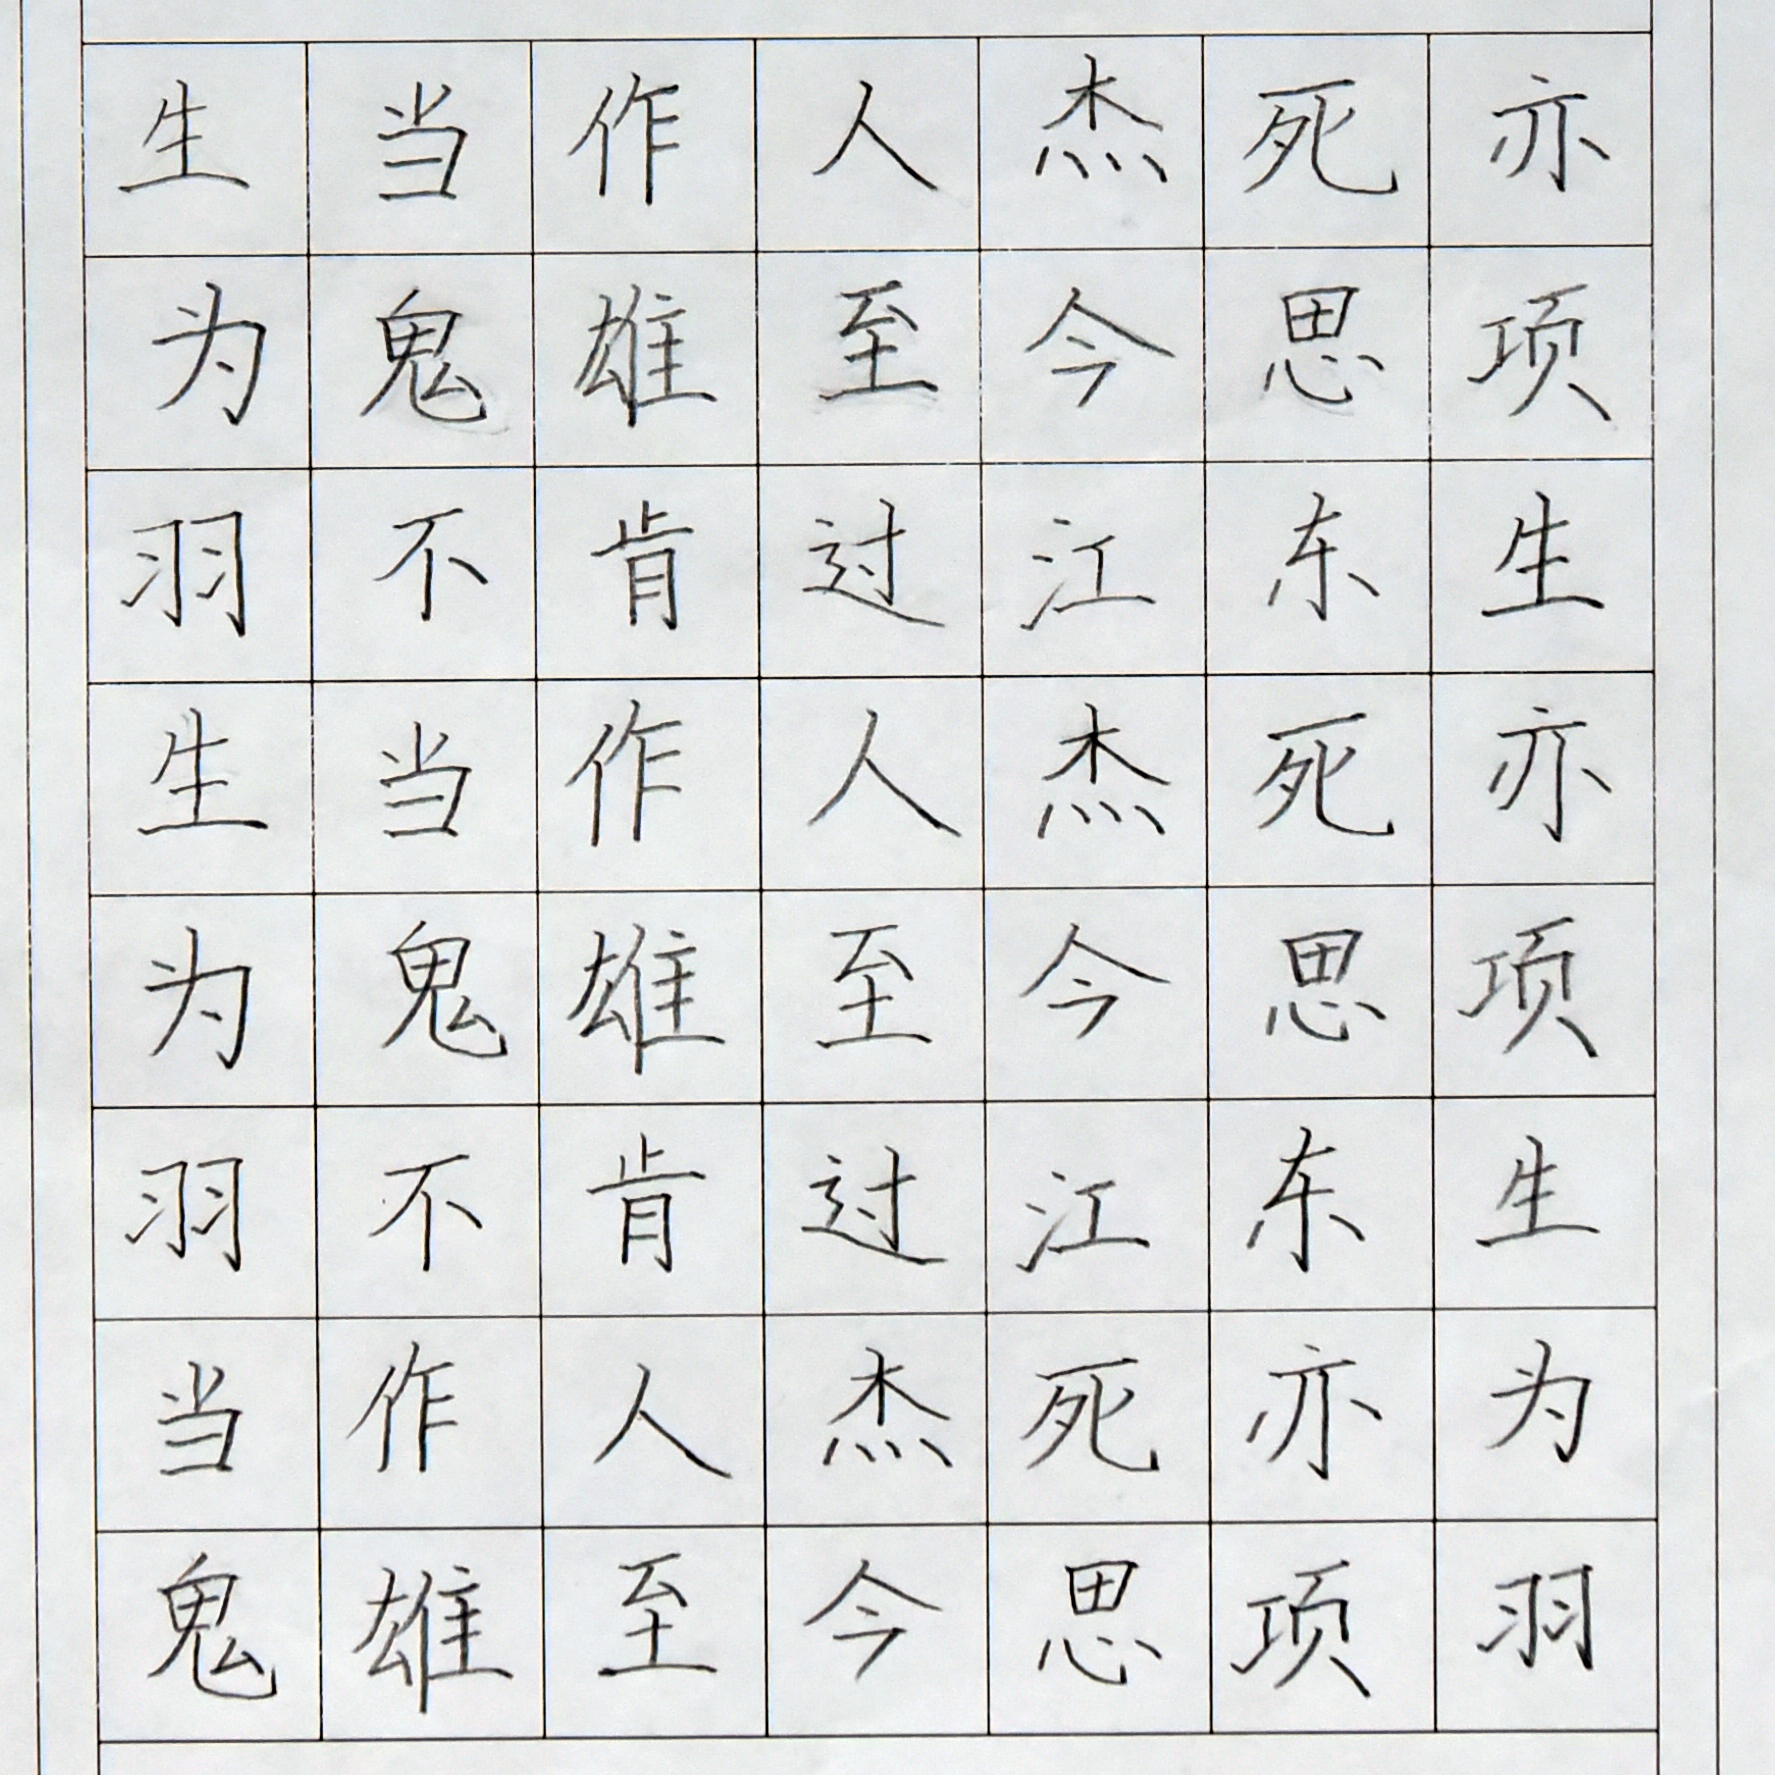 生当作人杰死亦
为鬼雄至今思项
羽不肯过江东生
生当作人杰死亦
为鬼雄至今思项
羽不肯过江东生
当作人杰死亦为
鬼雄至今思项羽